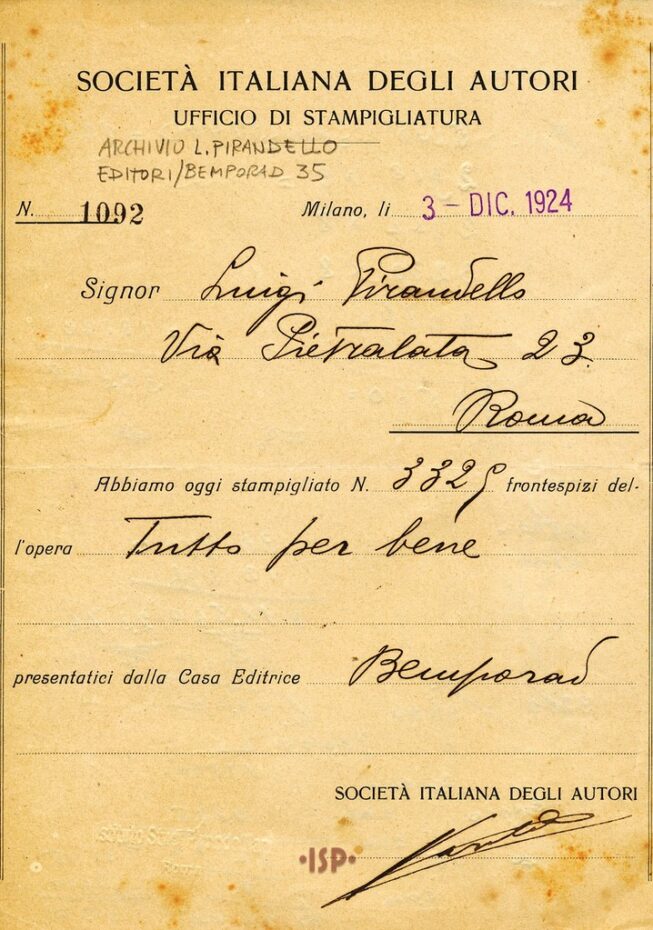 SOCIETÀ ITALIANA DEGLI AUTORI
UFFICIO DI STAMPIGLIATURA
ARCHIVIO L. PIRANDELLO
EDITORI/BEMPORAD 35
N. 1092 Milano, li 3 - DIC. 1924
Signor Luigi Pirandello
Via Pietralata 23
Roma
Abbiamo oggi stampigliato N. 3325 frontespizi del-
l'opera Tutto per bene
presentatici dalla Casa Editrice Bemporad
SOCIETÀ ITALIANA DEGLI AUTORI
·ISP·